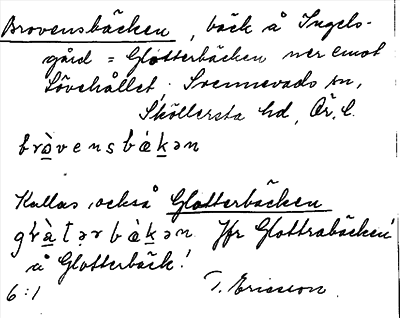 Brovensbäcken, bäck å Ingels-
gård = Glotterbäcken ner emot
Lövehållet, Svennevads sn,
Sköllersta hd, Ör. l.
bràvensbákən
Kallas också Glotterbäcken
Jfr Glottrabäcken
å Glotterbäck!
6:1 T. Ericsson.